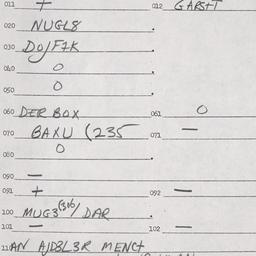 011 + 012 GARST
020 NUGL8 .
030 DOJF7K .
040 O .
050 O .
060 DER BOX 061 O
070 BAXU (235 071 —
080 O .
090 — .
091 + 092 —
100 MUG3(306/ DAR .
101 — 102 —
11 AN AJD8L3R MENC+